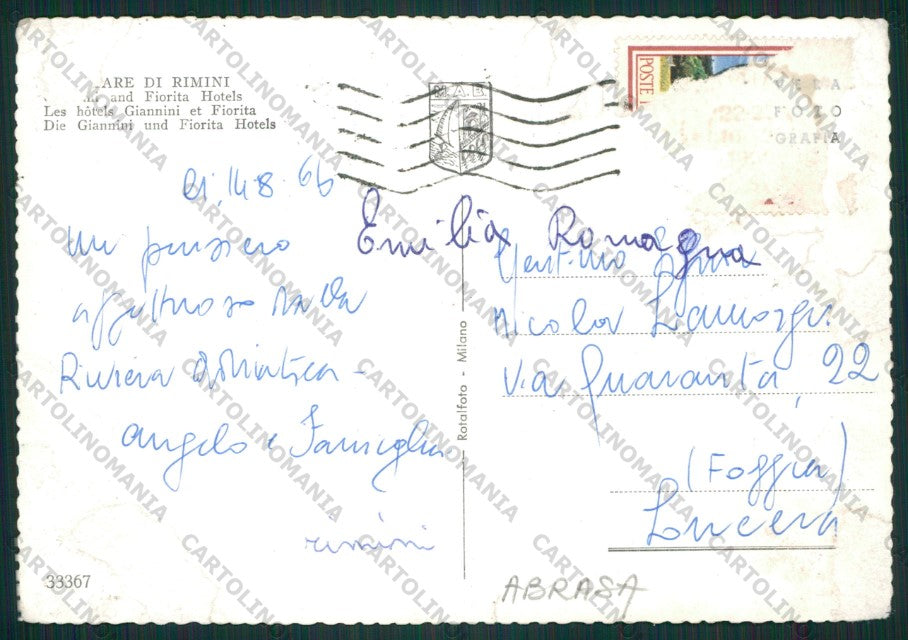 ARE DI RIMINI
and Fiorita Hotels
Les hôtels Giannini et Fiorita
Die Giannini und Fiorita Hotels
M.A.B
POSTE
VERA
FOTO
GRAFIA
li, 14.8.66
Emilia Romagna
Un pensiero
affettuoso dalla
Riviera Adriatica -
Angelo e Famiglia
rimini
Rotalfoto - Milano
Gent.mo
Nicola
Via Quaranta, 22
(Foggia)
Lucera
33367
ABRASA
CARTOLINOMANIA